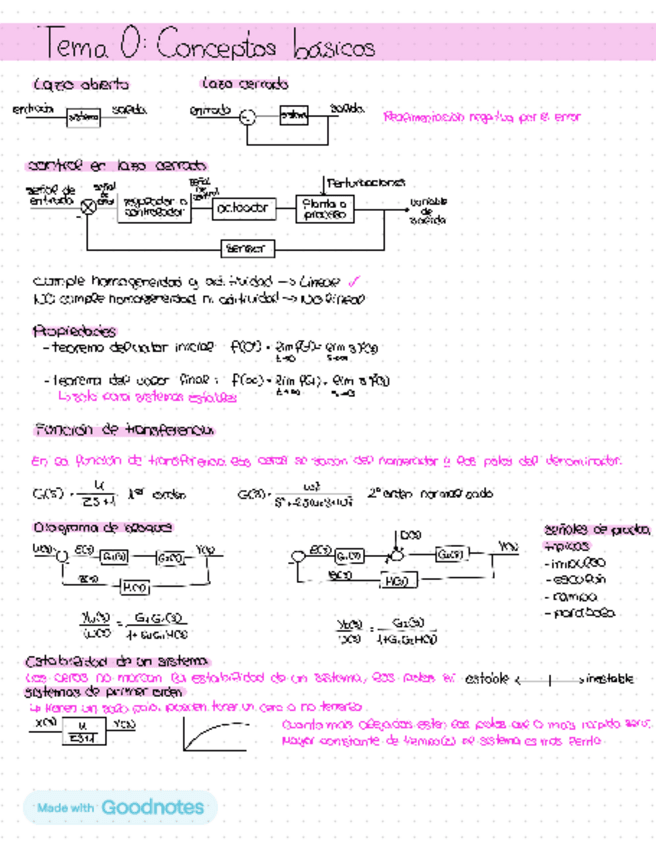 Tema 0: Conceptos básicos
Lazo abierto
lazo cerrado
entrada sistema salida
entrada sistema salida
Realimentación negativa por el error
control en lazo cerrado
señal de entrada
señal de error
regulador o controlador
señal de control
actuador
Perturbaciones
Planta o proceso
variable de salida
sensor
Cumple homogeneidad y aditividad -> Lineal ✓
NO cumple homogeneidad ni aditividad -> NO lineal
Propiedades
- teorema del valor inicial: f(0⁺) = lim f(t) = lim s F(s)
- teorema del valor final: f(∞) = lim f(t) = lim s F(s)
↳ solo para sistemas estables
Función de transferencia
En la función de transferencia los ceros se sacan del numerador y los polos del denominador.
1er orden
2º orden normalizado
Diagrama de bloques
U(s) E(s) G₁(s) G₂(s) Y(s)
B(s) H(s)
E(s) G₁(s) D(s) G₂(s) Y(s)
B(s) H(s)
señales de prueba típicas
- impulso
- escalón
- rampa
- parábola
Estabilidad de un sistema
Los ceros no marcan la estabilidad de un sistema, los polos sí estable inestable
sistemas de primer orden
↳ tienen un solo polo, pueden tener un cero o no tenerlo
X(s) Y(s)
Cuanto más alejados estén los polos del 0 más rápido será.
Mayor constante de tiempo(τ) el sistema es más lento
Made with Goodnotes